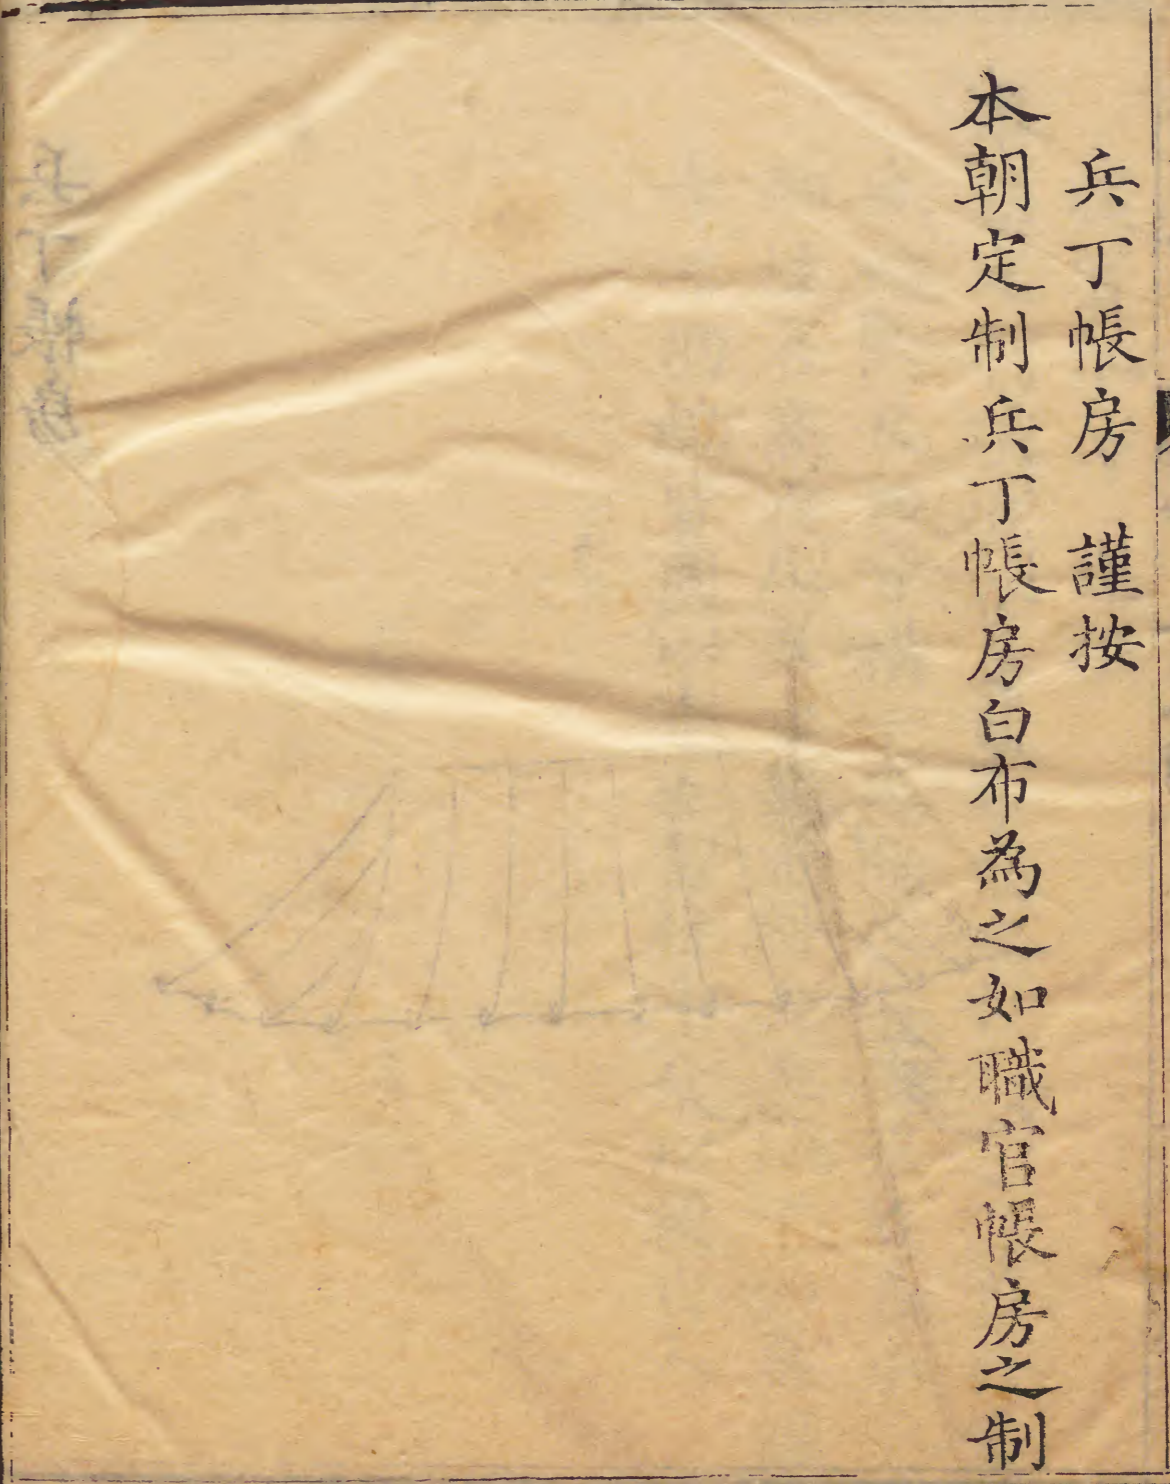 兵丁帳房　謹按
本朝定制兵丁帳房白布為之如職官帳房之制
兵丁帳房